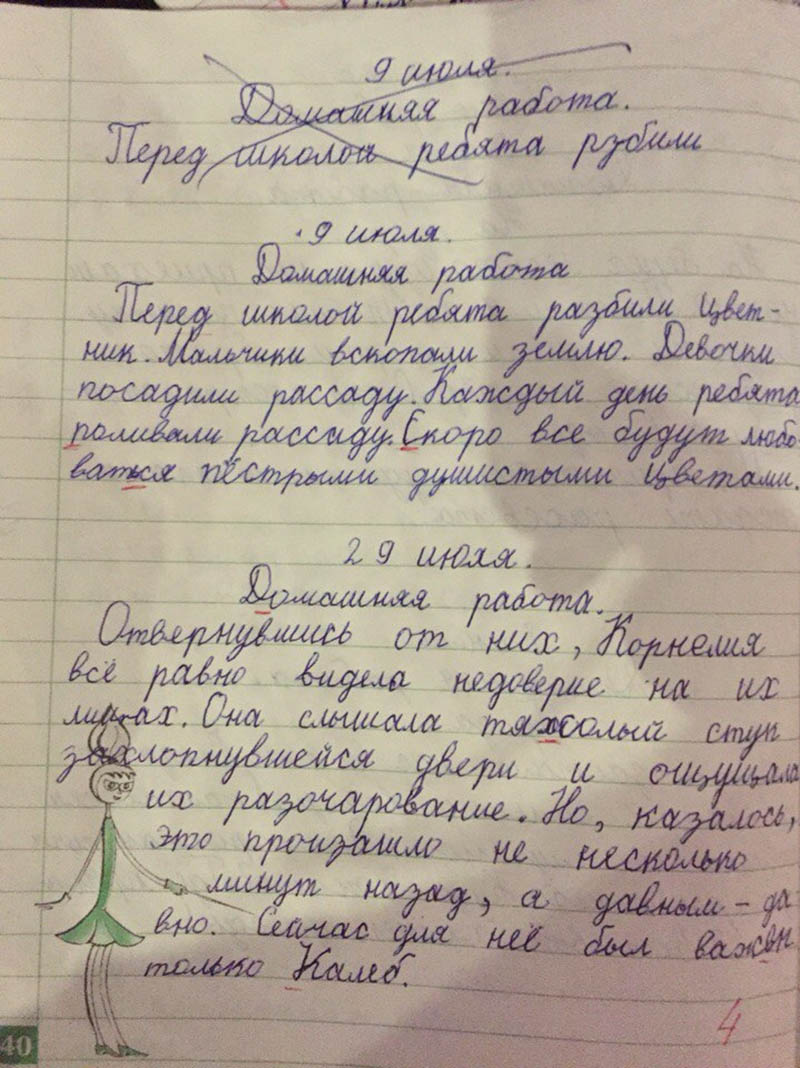 9 июля.
Домашняя работа.
Перед школой ребята рзбили
9 июля.
Домашняя работа
Перед школой ребята разбили цвет-
ник. Мальчики вскопали землю. Девочки
посадили рассаду. Каждый день ребята
поливали рассаду. Скоро все будут любо-
ваться пёстрыми душистыми цветами.
29 июля.
Домашняя работа.
Отвернувшись от них, Корнелия
всё равно видела недоверие на их
лицах. Она слышала тяжолый стук
захлопнувшейся двери и ощущала
их разочарование. Но, казалось,
это произашло не несколько
минут назад, а давным-да
вно. Сейчас для неё был важен
только Калеб.
4
40